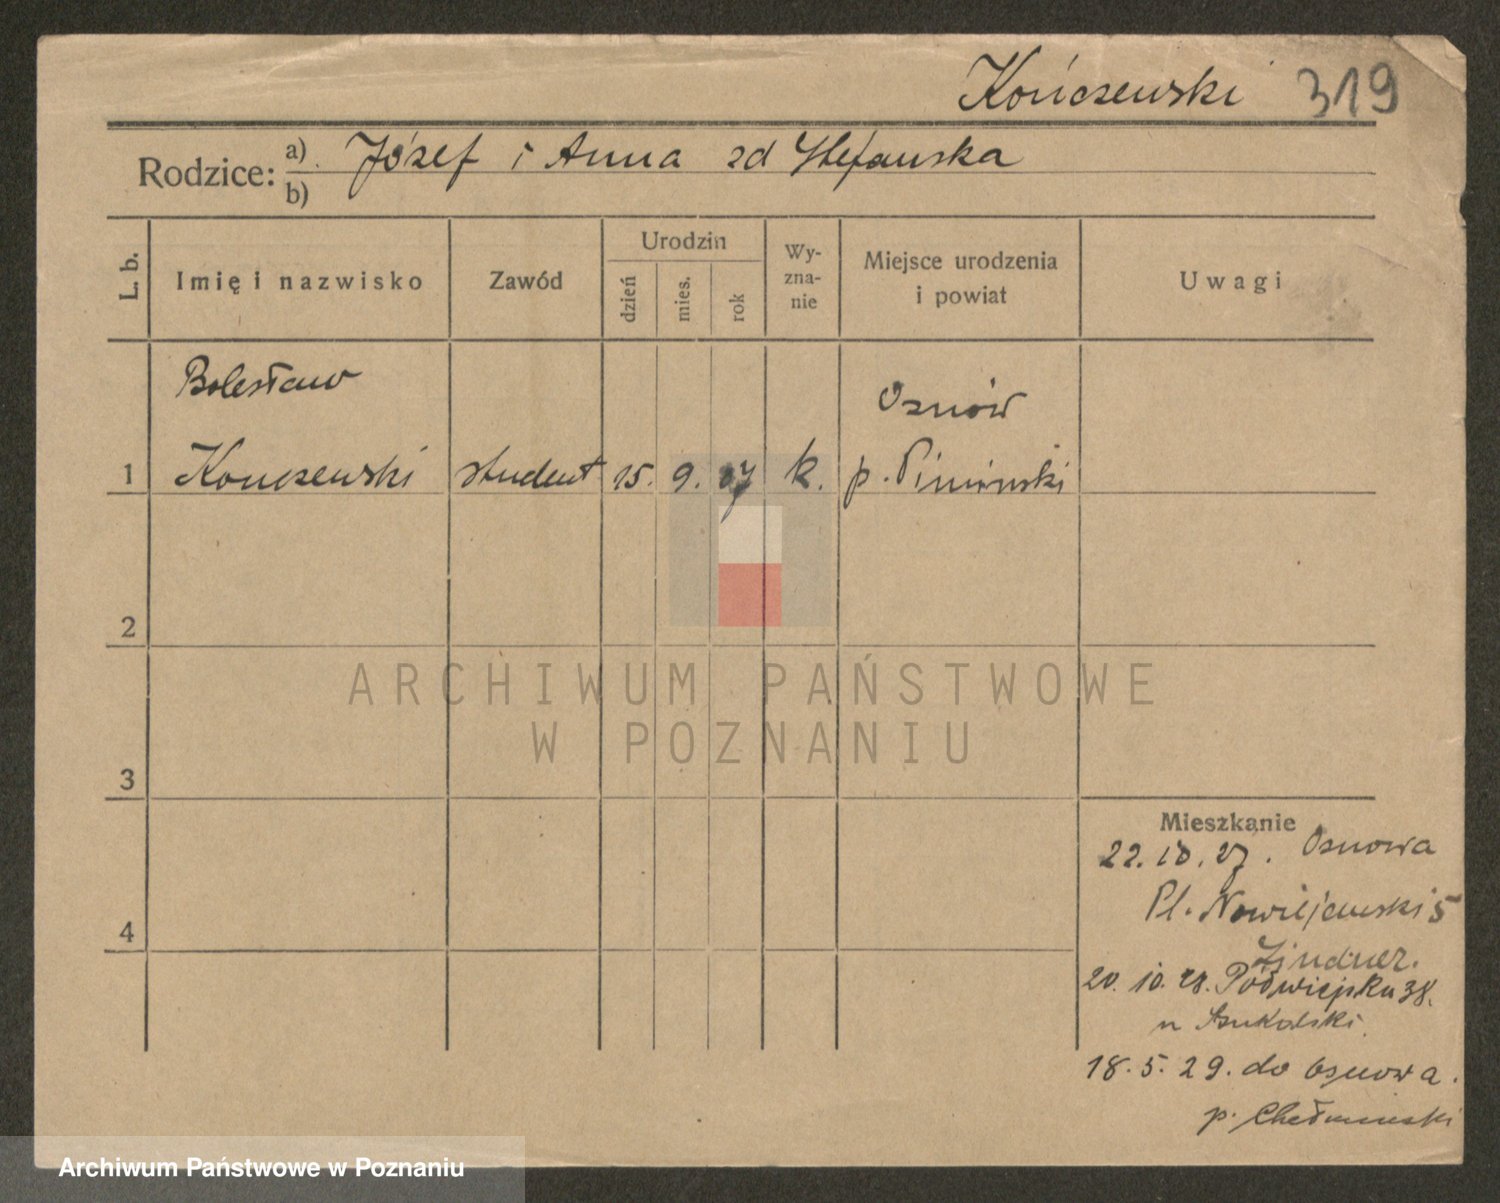 Kończewski 319
Rodzice: a) Józef i Anna zd Stefańska
b)
L. b.
Imię i nazwisko
Zawód
Urodzin
dzień
mies.
rok
Wy-
zna-
nie
Miejsce urodzenia
i powiat
Uwagi
Bolesław
Osnów
1 Konczewski student 15. 9. 07 k. p.
2
3
4
ARCHIWUM PAŃSTWOWE
W POZNANIU
Mieszkanie
22.10.27. Osnowa
Pl. Nowiejewski 5
Lindner.
20. 10. 28. Podwiejska 38.
u Szukalski
18. 5. 29. do Osnowa.
p. Chełmiński
Archiwum Państwowe w Poznaniu